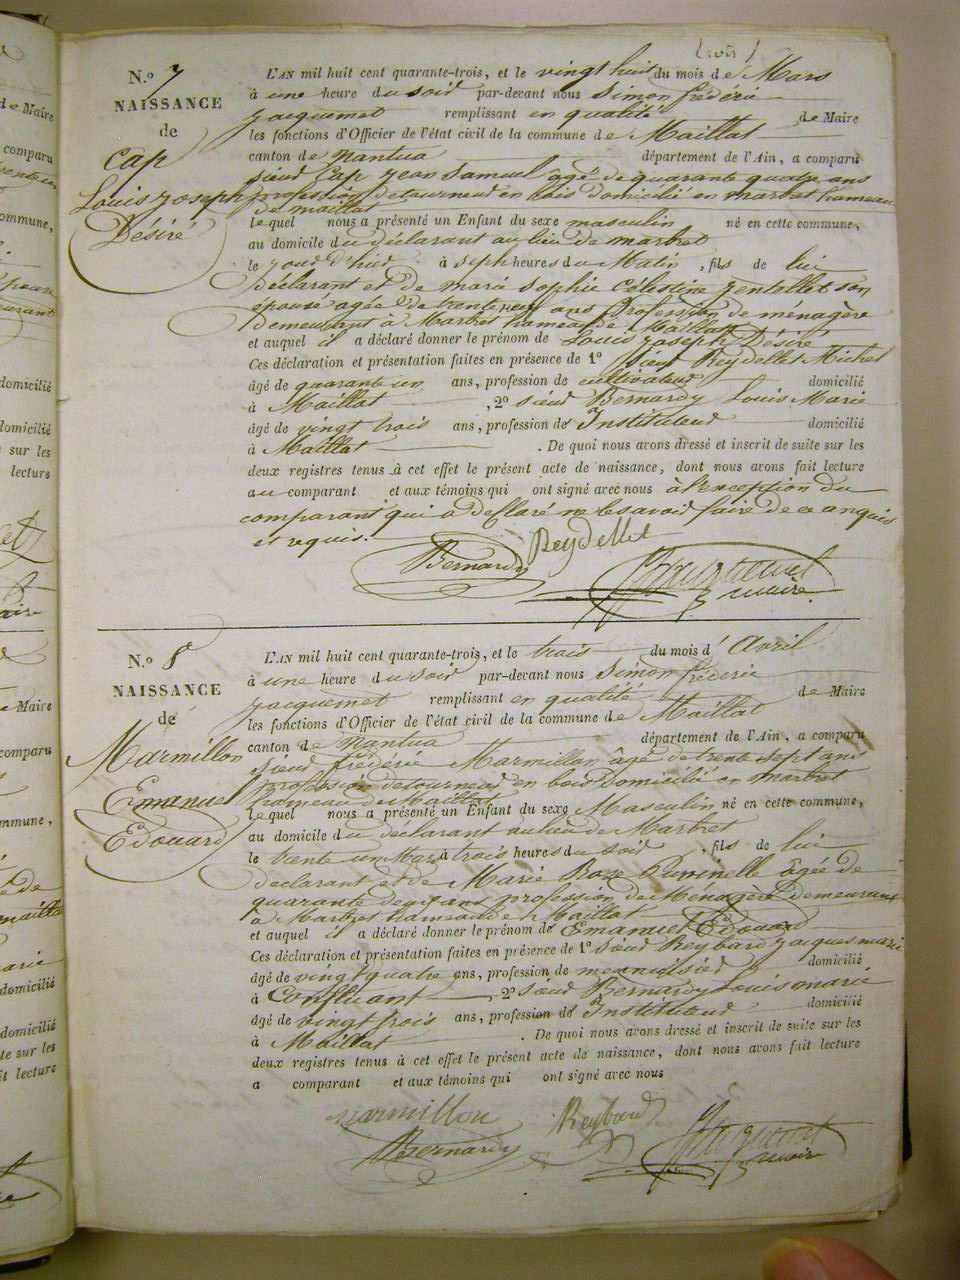 (trois)
N.o 7
NAISSANCE
de
Cap
Louis Joseph
Désiré
L'AN mil huit cent quarante-trois, et le vingt huit du mois de Mars
à une heure du soir par-devant nous Simon frédéric
jacquemet remplissant en qualité de Maire
les fonctions d'Officier de l'état civil de la commune de Maillat
canton de Nantua département de l'Ain, a comparu
sieur Cap jean Samuel âgé de quarante quatre ans
profession de tourneur en bois domicilié en martret hameau
de maillat
lequel nous a présenté un Enfant du sexe masculin né en cette commune,
au domicile du déclarant au lieu de martret
le jourd'hui à sept heures du Matin, fils de lui
déclarant et de marie Sophie Célestine son
épouse agée de trente neuf ans profession de ménagère
demeurant à Martret hameau de Maillat
et auquel il a déclaré donner le prénom de Louis Joseph Désiré
Ces déclaration et présentation faites en présence de 1o sieur Reydellet Michel
âgé de quarante un ans, profession de cultivateur domicilié
à Maillat, 2o sieur Bernardy Louis Marie
âgé de vingt trois ans, profession de Instituteur domicilié
à Maillat. De quoi nous avons dressé et inscrit de suite sur les
deux registres tenus à cet effet le présent acte de naissance, dont nous avons fait lecture
au comparant et aux témoins qui ont signé avec nous à l'exception du
comparant qui a déclaré ne le savoir faire de ce anquis
et requis.
Bernardy Reydellet Jacquemet
maire
N.o 8
NAISSANCE
de
Marmillon
Emanuel
Edouard
L'AN mil huit cent quarante-trois, et le trois du mois d'Avril
à une heure du soir par-devant nous Simon frédéric
jacquemet remplissant en qualité de Maire
les fonctions d'Officier de l'état civil de la commune de Maillat
canton de Nantua département de l'Ain, a comparu
sieur frédéric Marmillon âgé de trente sept ans
profession de tourneur en bois domicilié en martret
hameau de Maillat
lequel nous a présenté un Enfant du sexe Masculin né en cette commune,
au domicile du déclarant au lieu de Martret
le trente un Mars à trois heures du soir, fils de lui
déclarant et de Marie Roze âgée de
quarante ans profession de Ménagère demeurant
à Martret hameau de Maillat
et auquel il a déclaré donner le prénom de Emanuel Edouard
Ces déclaration et présentation faites en présence de 1o sieur Reybard jacques marie
âgé de vingt quatre ans, profession de menuisier domicilié
à Confluant, 2o sieur Bernardy Louis marie
âgé de vingt trois ans, profession de Instituteur domicilié
à Maillat. De quoi nous avons dressé et inscrit de suite sur les
deux registres tenus à cet effet le présent acte de naissance, dont nous avons fait lecture
a comparant et aux témoins qui ont signé avec nous
Marmillon Reybard Jacquemet
Bernardy maire